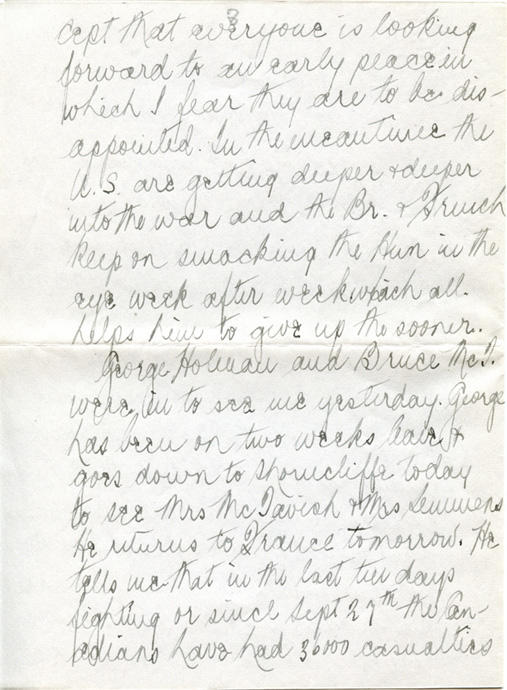 3
cept that everyone is looking
forward to an early peace in
which I fear they are to be dis-
appointed. In the meantime the
U.S. are getting deeper & deeper
into the war and the Br. & French
keep on smacking the Hun in the
eye week after week which all
helps him to give up the sooner.
George Holman and Bruce McT.
were in to see me yesterday. George
has been on two weeks leave &
goes down to Shorncliffe today
to see Mrs McTavish & Mrs Lemmens
He returns to France tomorrow. He
tells me that in the last ten days
fighting or since Sept 27th the Can-
adians have had 36000 casualties